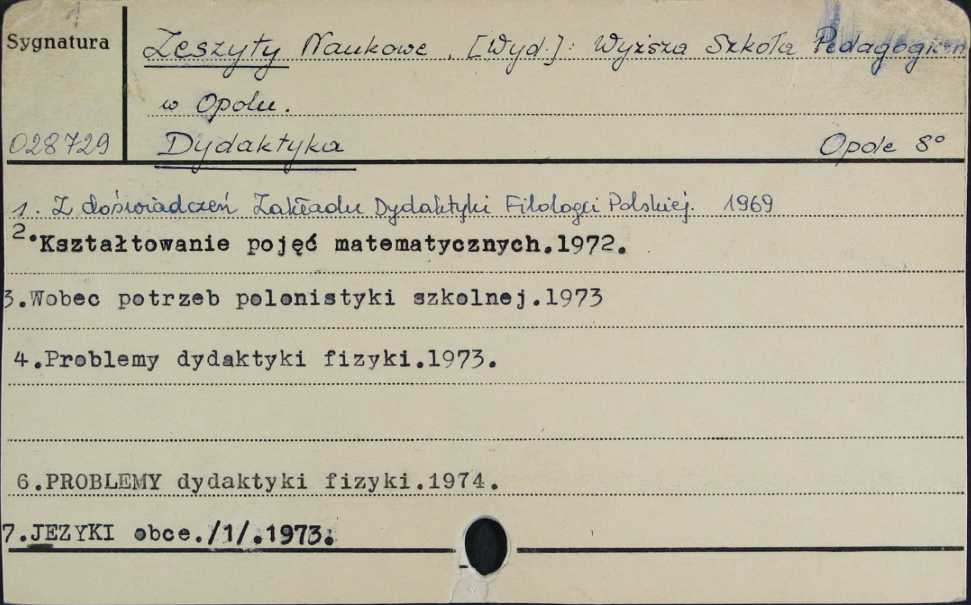 1
Sygnatura
Zeszyty Naukowe. [Wyd.]: Wyższa Szkoła Pedagogiczn
w Opolu.
028729 Dydaktyka Opole 8°
1. Z doświadczeń Zakładu Dydaktyki Filologii Polskiej. 1969
2.Kształtowanie pojęć matematycznych.1972.
3.Wobec potrzeb polonistyki szkolnej.1973
4.Problemy dydaktyki fizyki.1973.
6.PROBLEMY dydaktyki fizyki.1974.
7.JEZYKI obce./1/.1973.